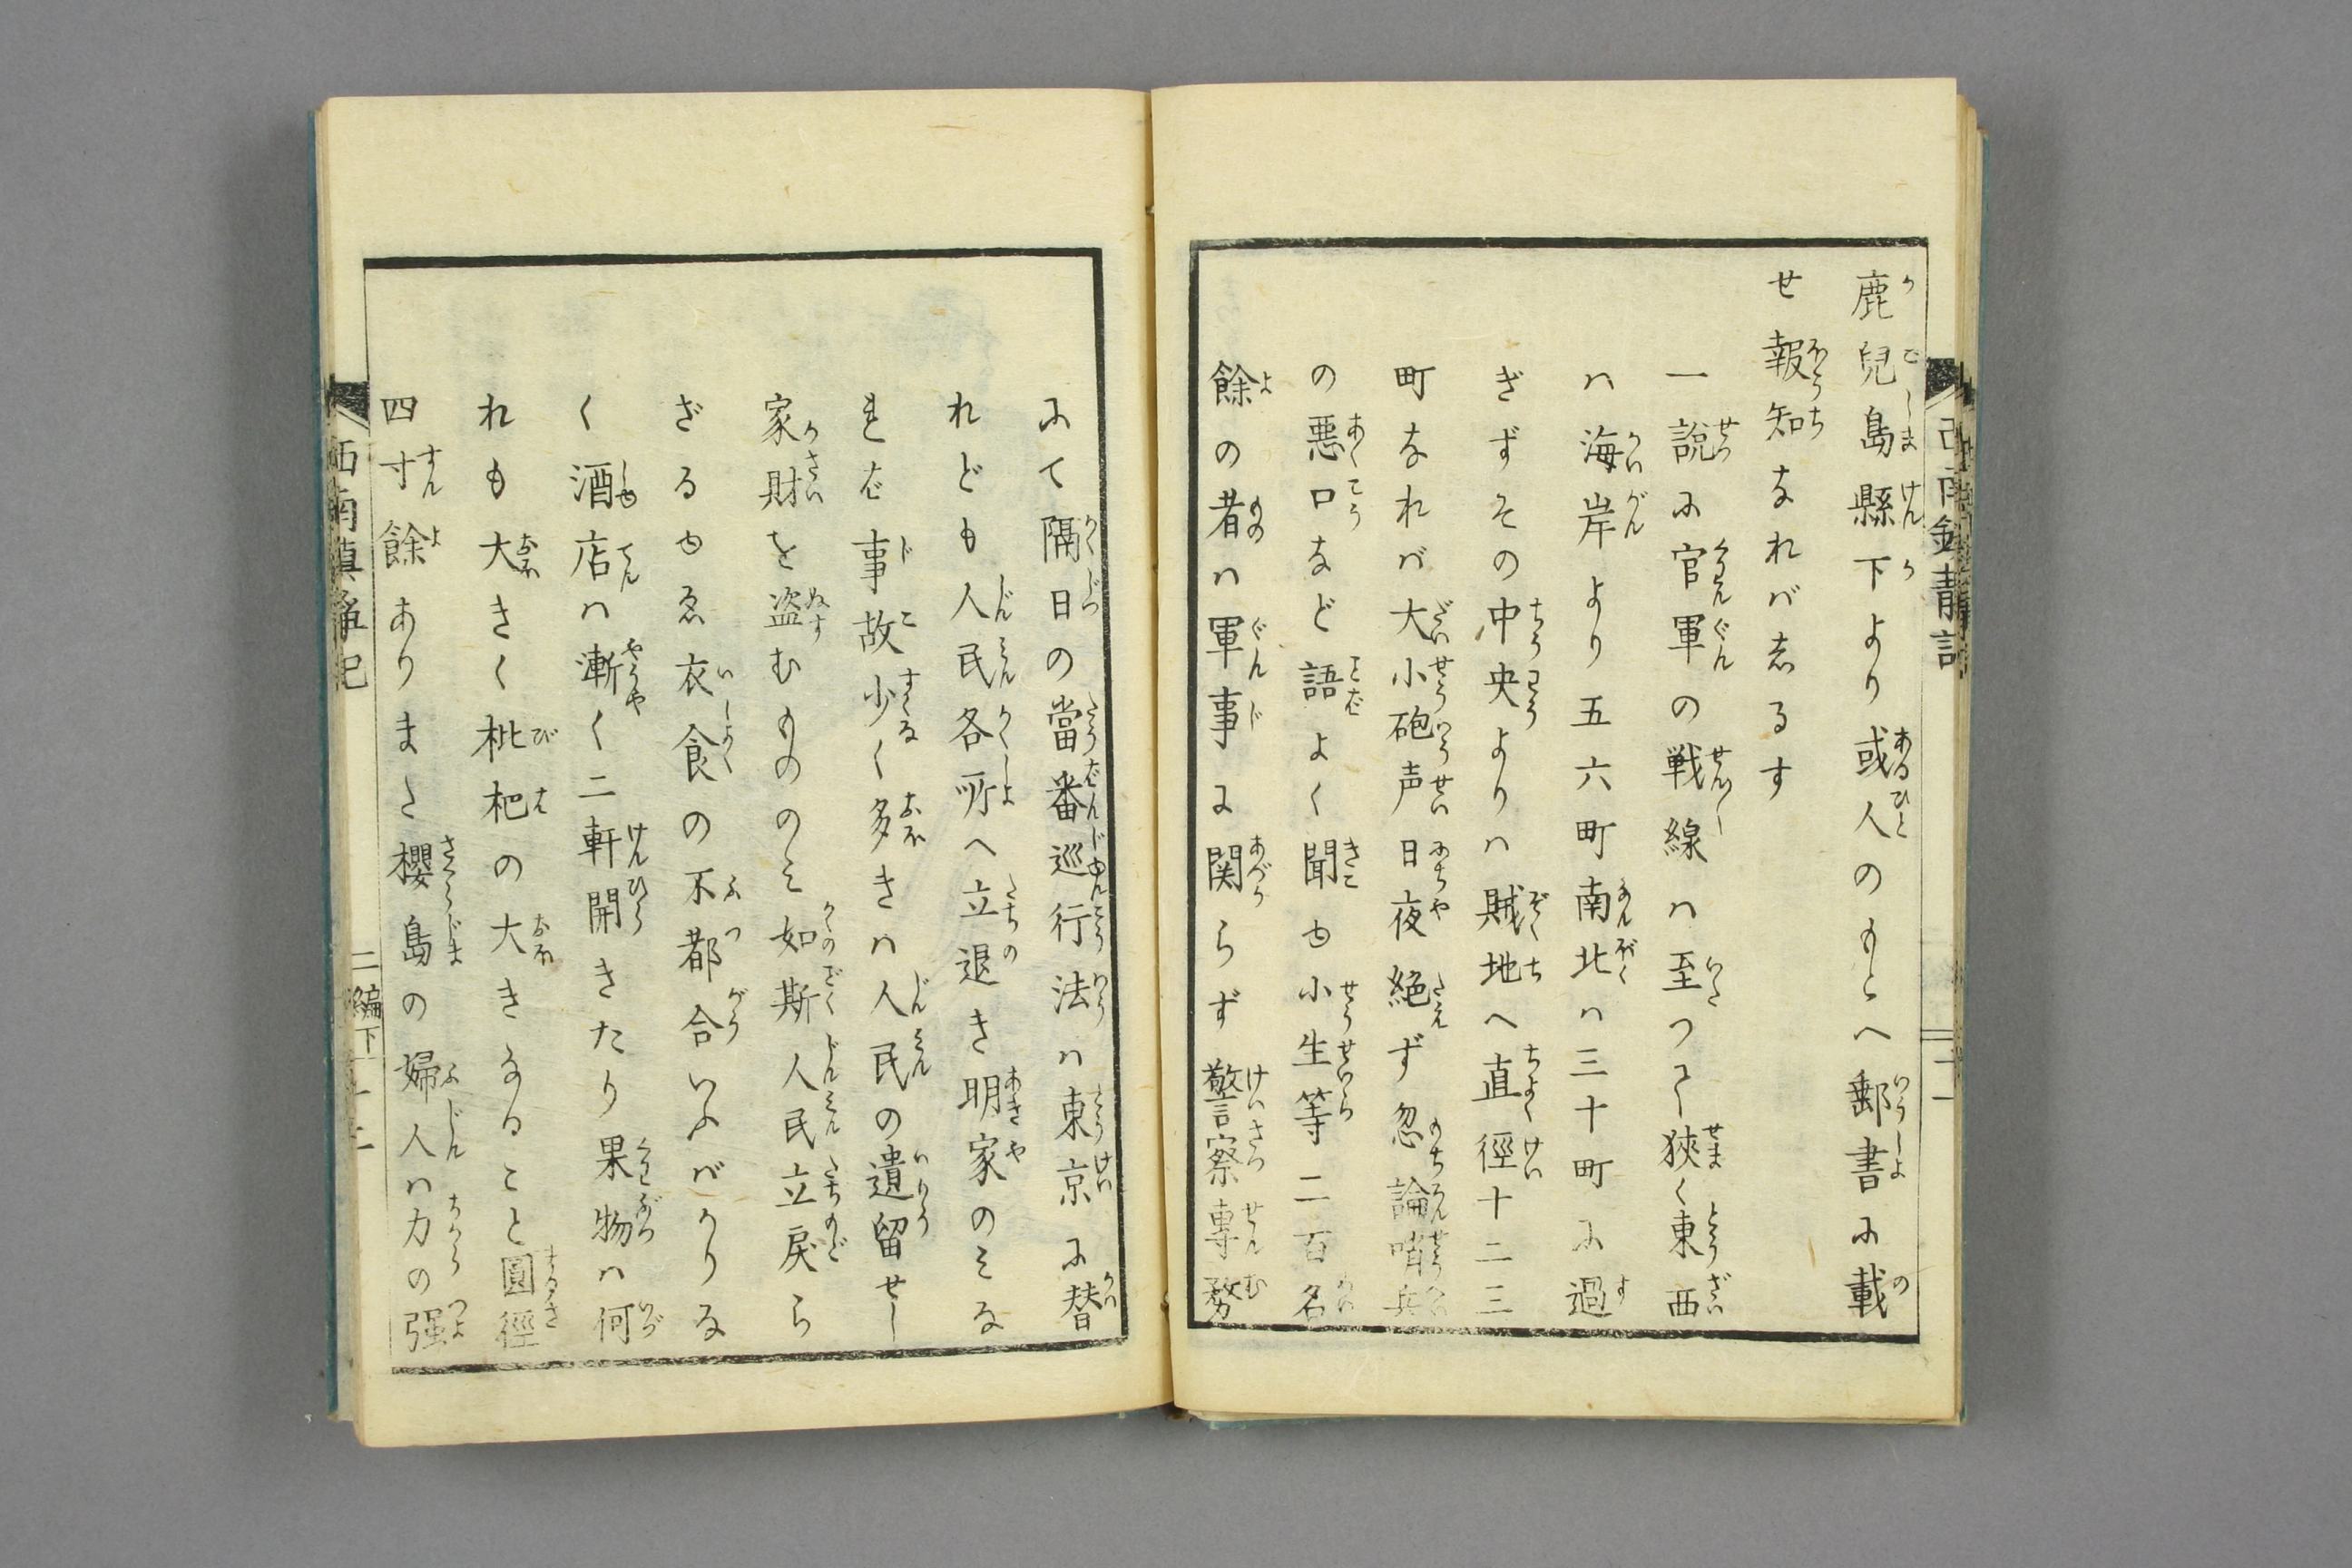 鹿兒島縣下より或人のもとへ郵書に載
せ報知なればしるす
一説に官軍の戦線ハ至つて狹く東西
ハ海岸より五六町南北ハ三十町に過
ぎずその中央よりハ賊地へ直徑十二三
町なれバ大小砲声日夜絶ず忽論哨兵
の悪口など語よく聞ゆ小生等二百名
餘の者ハ軍事に関らず警察專務
にて隔日の當番巡行法ハ東京に替
れども人民各所へ立退き明家のみな
れば事故少く多きハ人民の遺留せし
家財を盗むもののみ如斯人民立戻ら
ざるゆゑ衣食の不都合いふばかりな
く酒店ハ漸く二軒開きたり果物ハ何
れも大きく枇杷の大きなること圓徑
四寸餘ありまた櫻島の婦人ハ力の强
西南鎮静記
二編下
十二